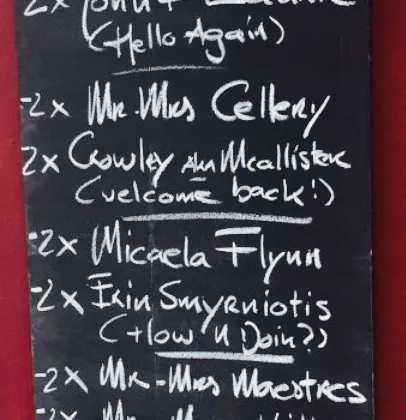 2x John +
(Hello Again)
-2x Mr. Mrs Cellery
2x Crowley AKA Mcallister
(welcome back!)
-2x Micaela Flynn
-2x Erin Smyrniotis
(How U Doin?)
-2x Mr - Mrs Maestres
-2x Mr